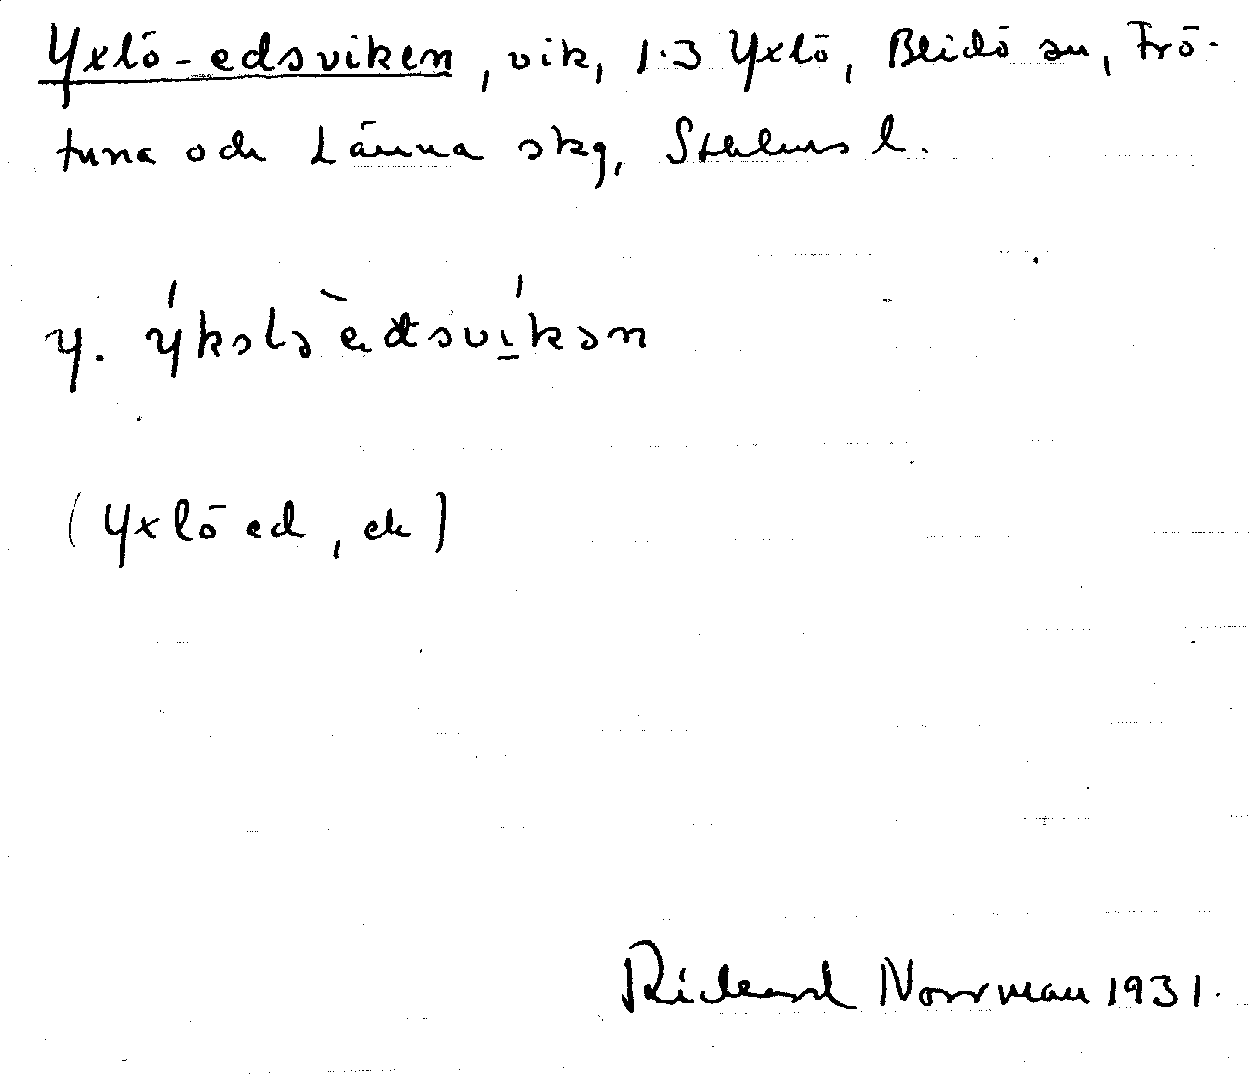 Yxlö-edsviken, vik, 1.3 Yxlö, Blidö sn, Frö-
tuna och Länna skg, Sthlms l.
y. ýksləèdsvíkən
(Yxlö ed, ek)
Rickard Norrman 1931.